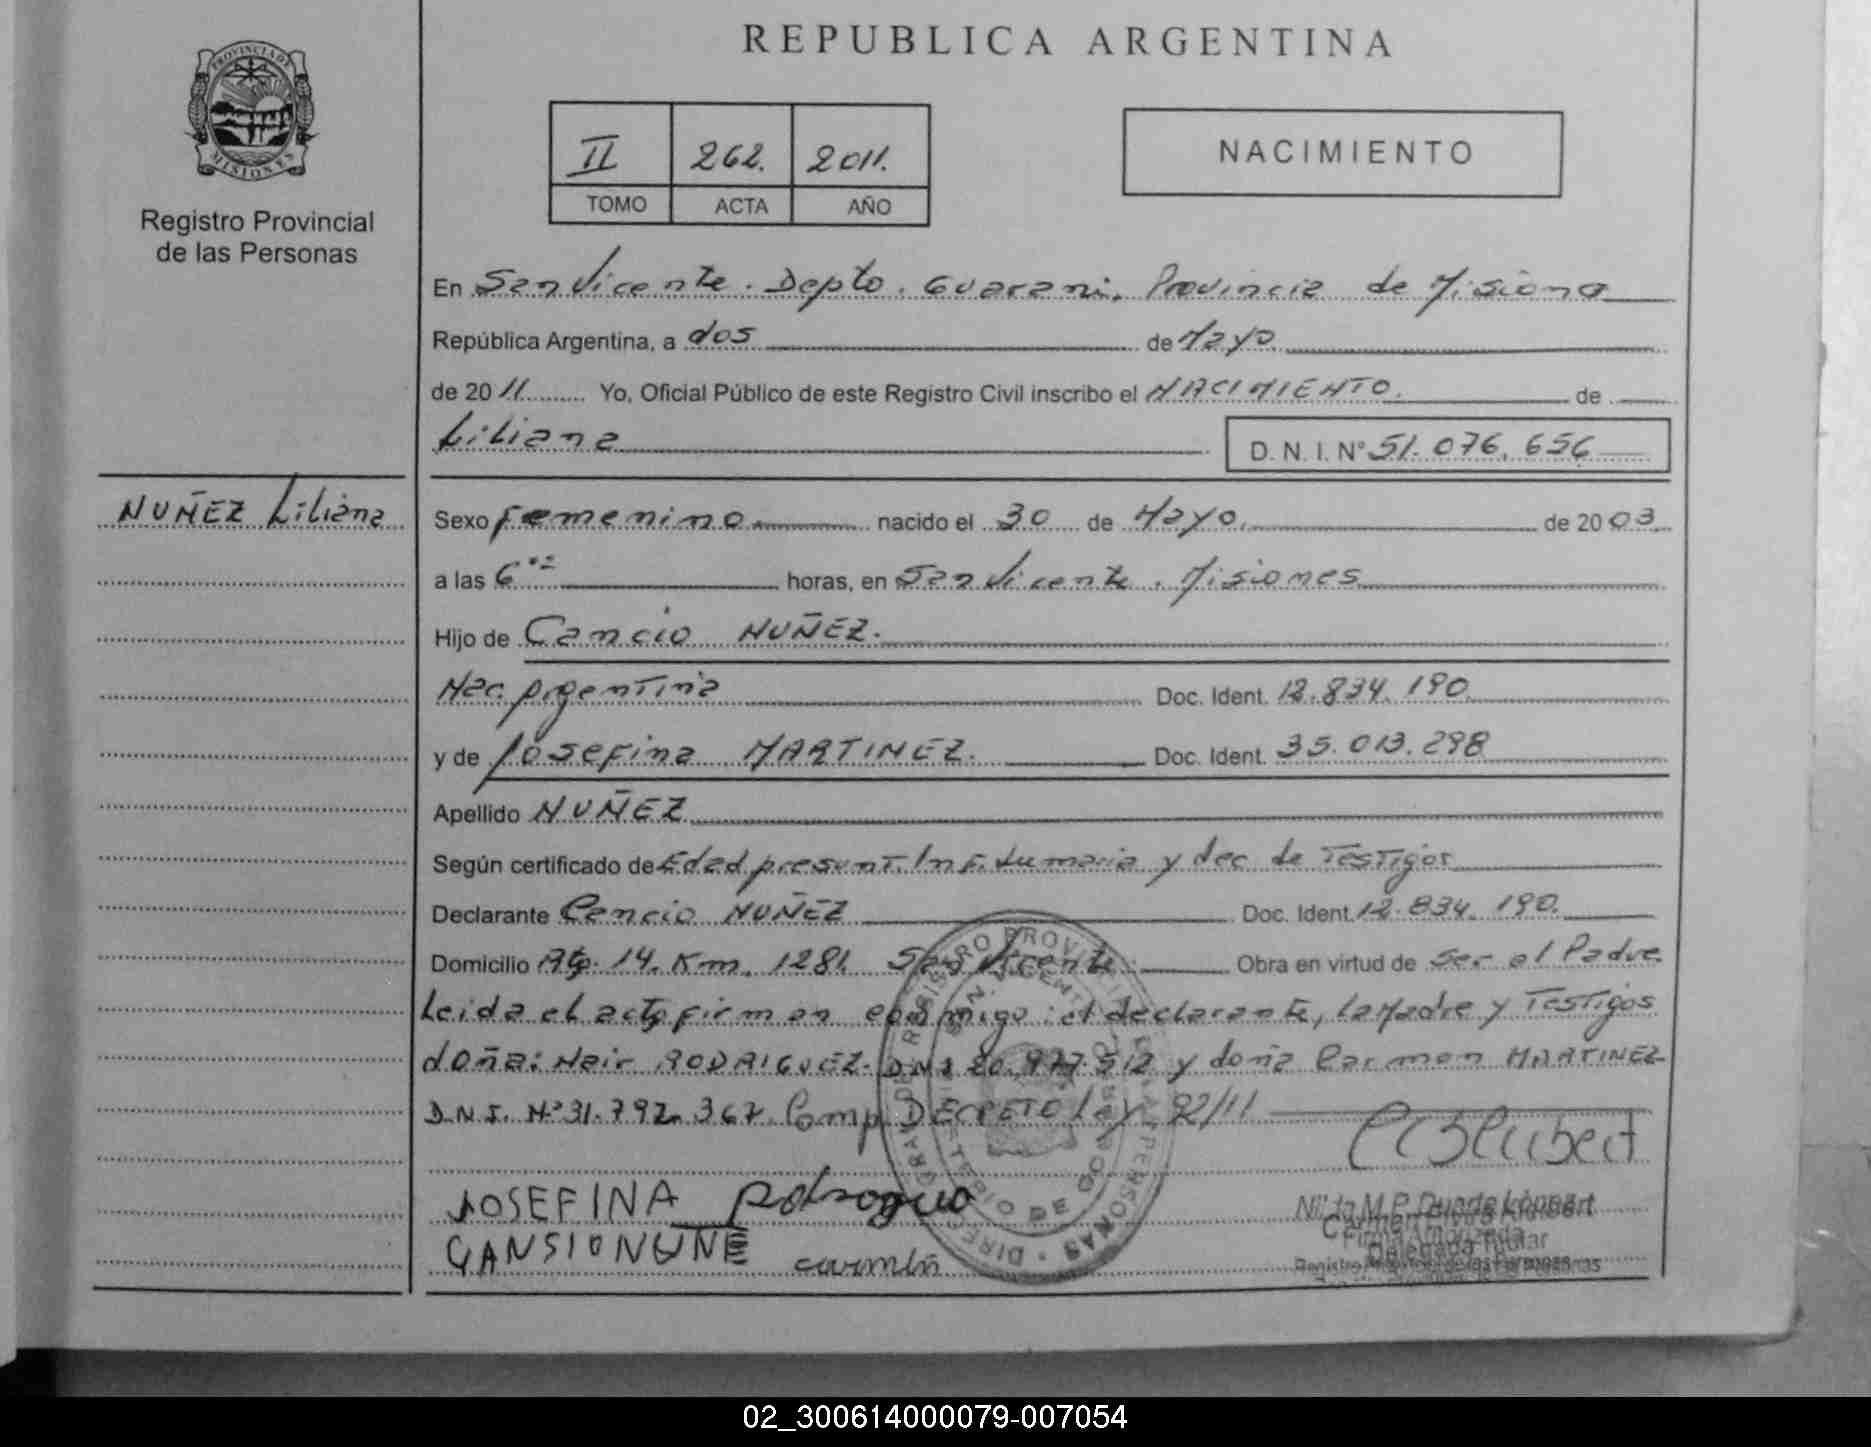 PROVINCIA DE
MISIONES
Registro Provincial
de las Personas
NUÑEZ Liliana
REPUBLICA ARGENTINA
II 262. 2011.
TOMO ACTA AÑO
NACIMIENTO
En San Vicente. Depto. Guarani. Provincia de Misiones
República Argentina, a dos de Mayo
de 2011 Yo, Oficial Público de este Registro Civil inscribo el NACIMIENTO. de
Liliana D. N. I. Nº 51.076.656
Sexo Femenino nacido el 30 de Mayo. de 2003
a las 6 horas, en San Vicente. Misiones
Hijo de Cancio NUÑEZ.
Nac. Argentina Doc. Ident. 12.834.190
y de Josefina MARTINEZ. Doc. Ident. 35.013.298
Apellido NUÑEZ
Según certificado de Edad presunt. Inf. Sumaria y dec de Testigos
Declarante Cancio NUÑEZ Doc. Ident. 12.834.190.
Domicilio 14. Km. 1281. San Vicente. Obra en virtud de Ser el Padre
Leida el acta firman conmigo: el declarante, la Madre y Testigos
doña: Nair RODRIGUEZ. DNI 20.977.512 y doña Carmen MARTINEZ
D.N.I. Nº 31.792.367. Comp DECRETO Ley 92/11
JOSEFINA
GANSIONUNE
02_300614000079-007054